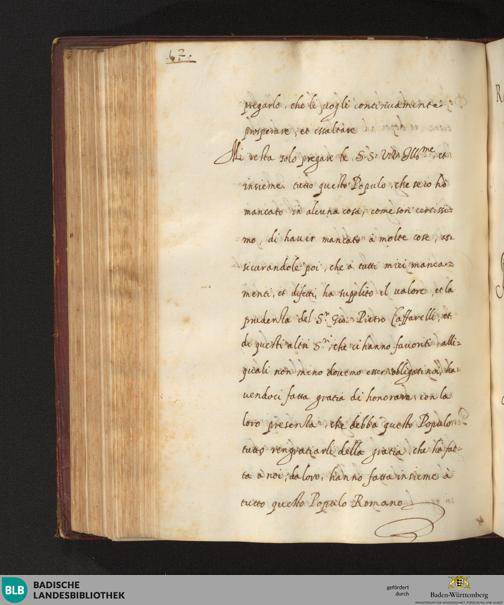 42.
pregarlo, che le vogli continuamente
prosperare, et essaltare
Mi resta solo pregare le S.S. VV. Ill.me, et
insieme tutto questo Populo, che se io hò
mancato in alcuna cosa, come son certissi=
mo, di haver mancato à molte cose, as=
sicurandole poi, che à tutti miei manca=
menti, et difetti, hà supplito il valore, et la
prudentia del S.r Gio: Pietro Caffarelli, et
di questi altri S.ri che ci hanno favoriti, alli
quali non meno dovemo esser obligati, ha=
vendoci fatta gratia di honorare, con la
loro presentia, che debba questo Populo
tutto rengratiarli della gratia, che hà fat=
ta à noi, da loro, hanno fatta insieme à
tutto questo Populo Romano
BLB
BADISCHE
LANDESBIBLIOTHEK
gefördert
durch
Baden-Württemberg